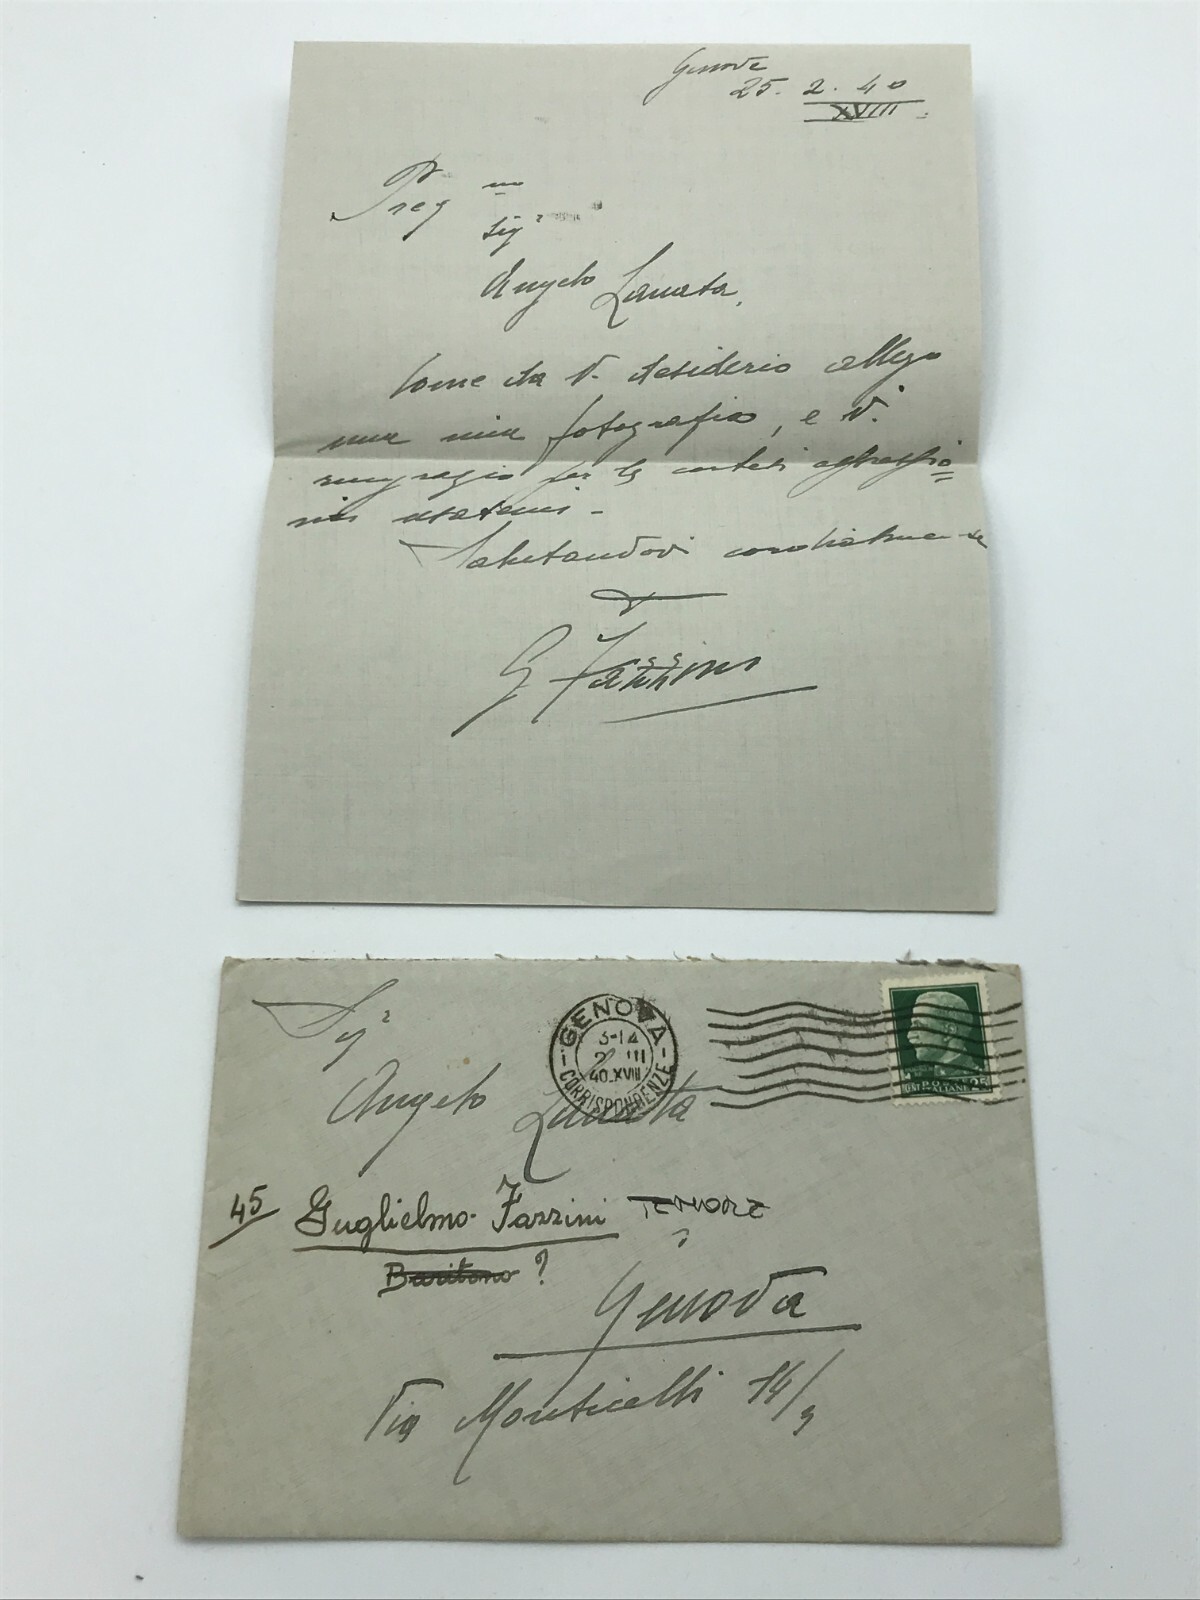 Genova
25. 2. 40
XVIII
Preg mo
Sigr
Angelo Lanata,
Come da V. desiderio allego
una mia fotografia, e Vi
ringrazio per le cortesi
usatemi -
Salutandovi cordialmente
G Fazzini
Sigr
GENOVA
40.XVIII
CORRISPONDENZE
Angelo Lanata
45 Guglielmo Fazzini TENORE
Baritono ?
Genova
Via Monticelli 14/9